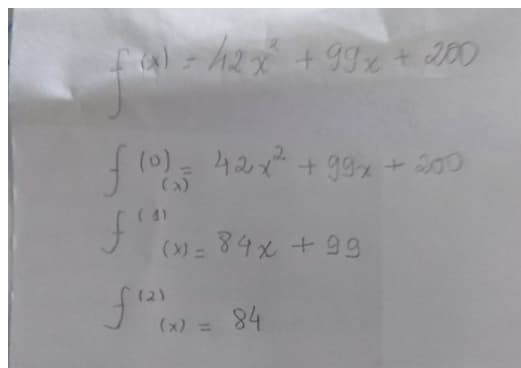 f(x) = 42x² + 99x + 200
f⁽⁰⁾(x) = 42x² + 99x + 200
f⁽¹⁾(x) = 84x + 99
f⁽²⁾(x) = 84